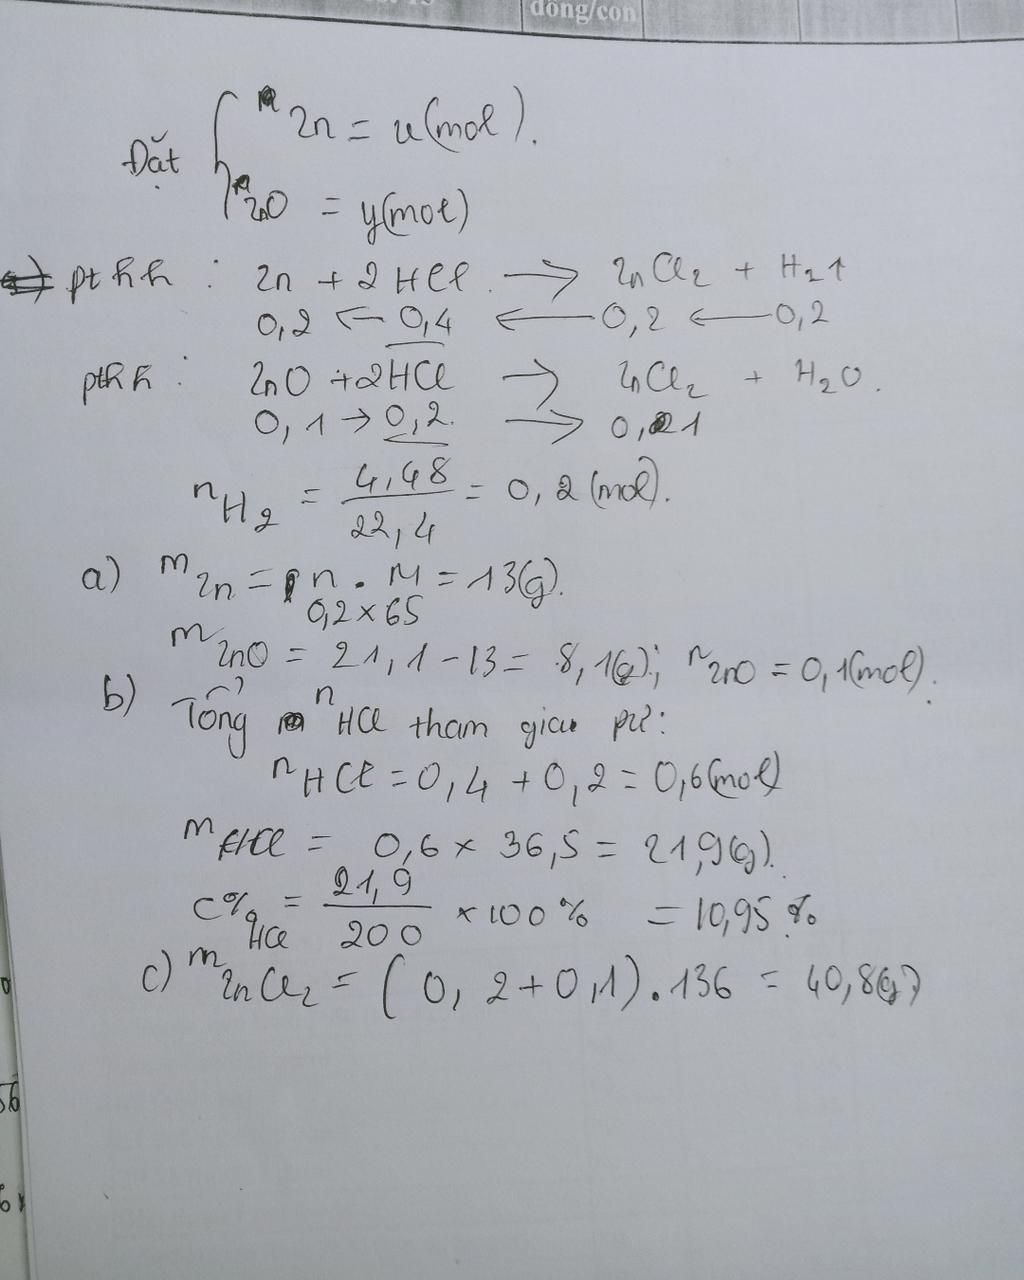 đồng/con
Đặt { n Zn = x (mol).
n ZnO = y (mol)
pthh : Zn + 2HCl → ZnCl2 + H2↑
0,2 ← 0,4 ← 0,2 ← 0,2
pthh : ZnO + 2HCl → ZnCl2 + H2O.
0,1 → 0,2. → 0,1
nH2 = 4,48/22,4 = 0,2 (mol).
a) mZn = n . M = 13(g).
0,2 x 65
mZnO = 21,1 - 13 = 8,1(g); nZnO = 0,1(mol).
b) Tổng nHCl tham gia pư:
nHCl = 0,4 + 0,2 = 0,6(mol)
mHCl = 0,6 x 36,5 = 21,9(g).
C%HCl = 21,9/200 x 100% = 10,95%
c) mZnCl2 = (0,2+0,1).136 = 40,8(g)